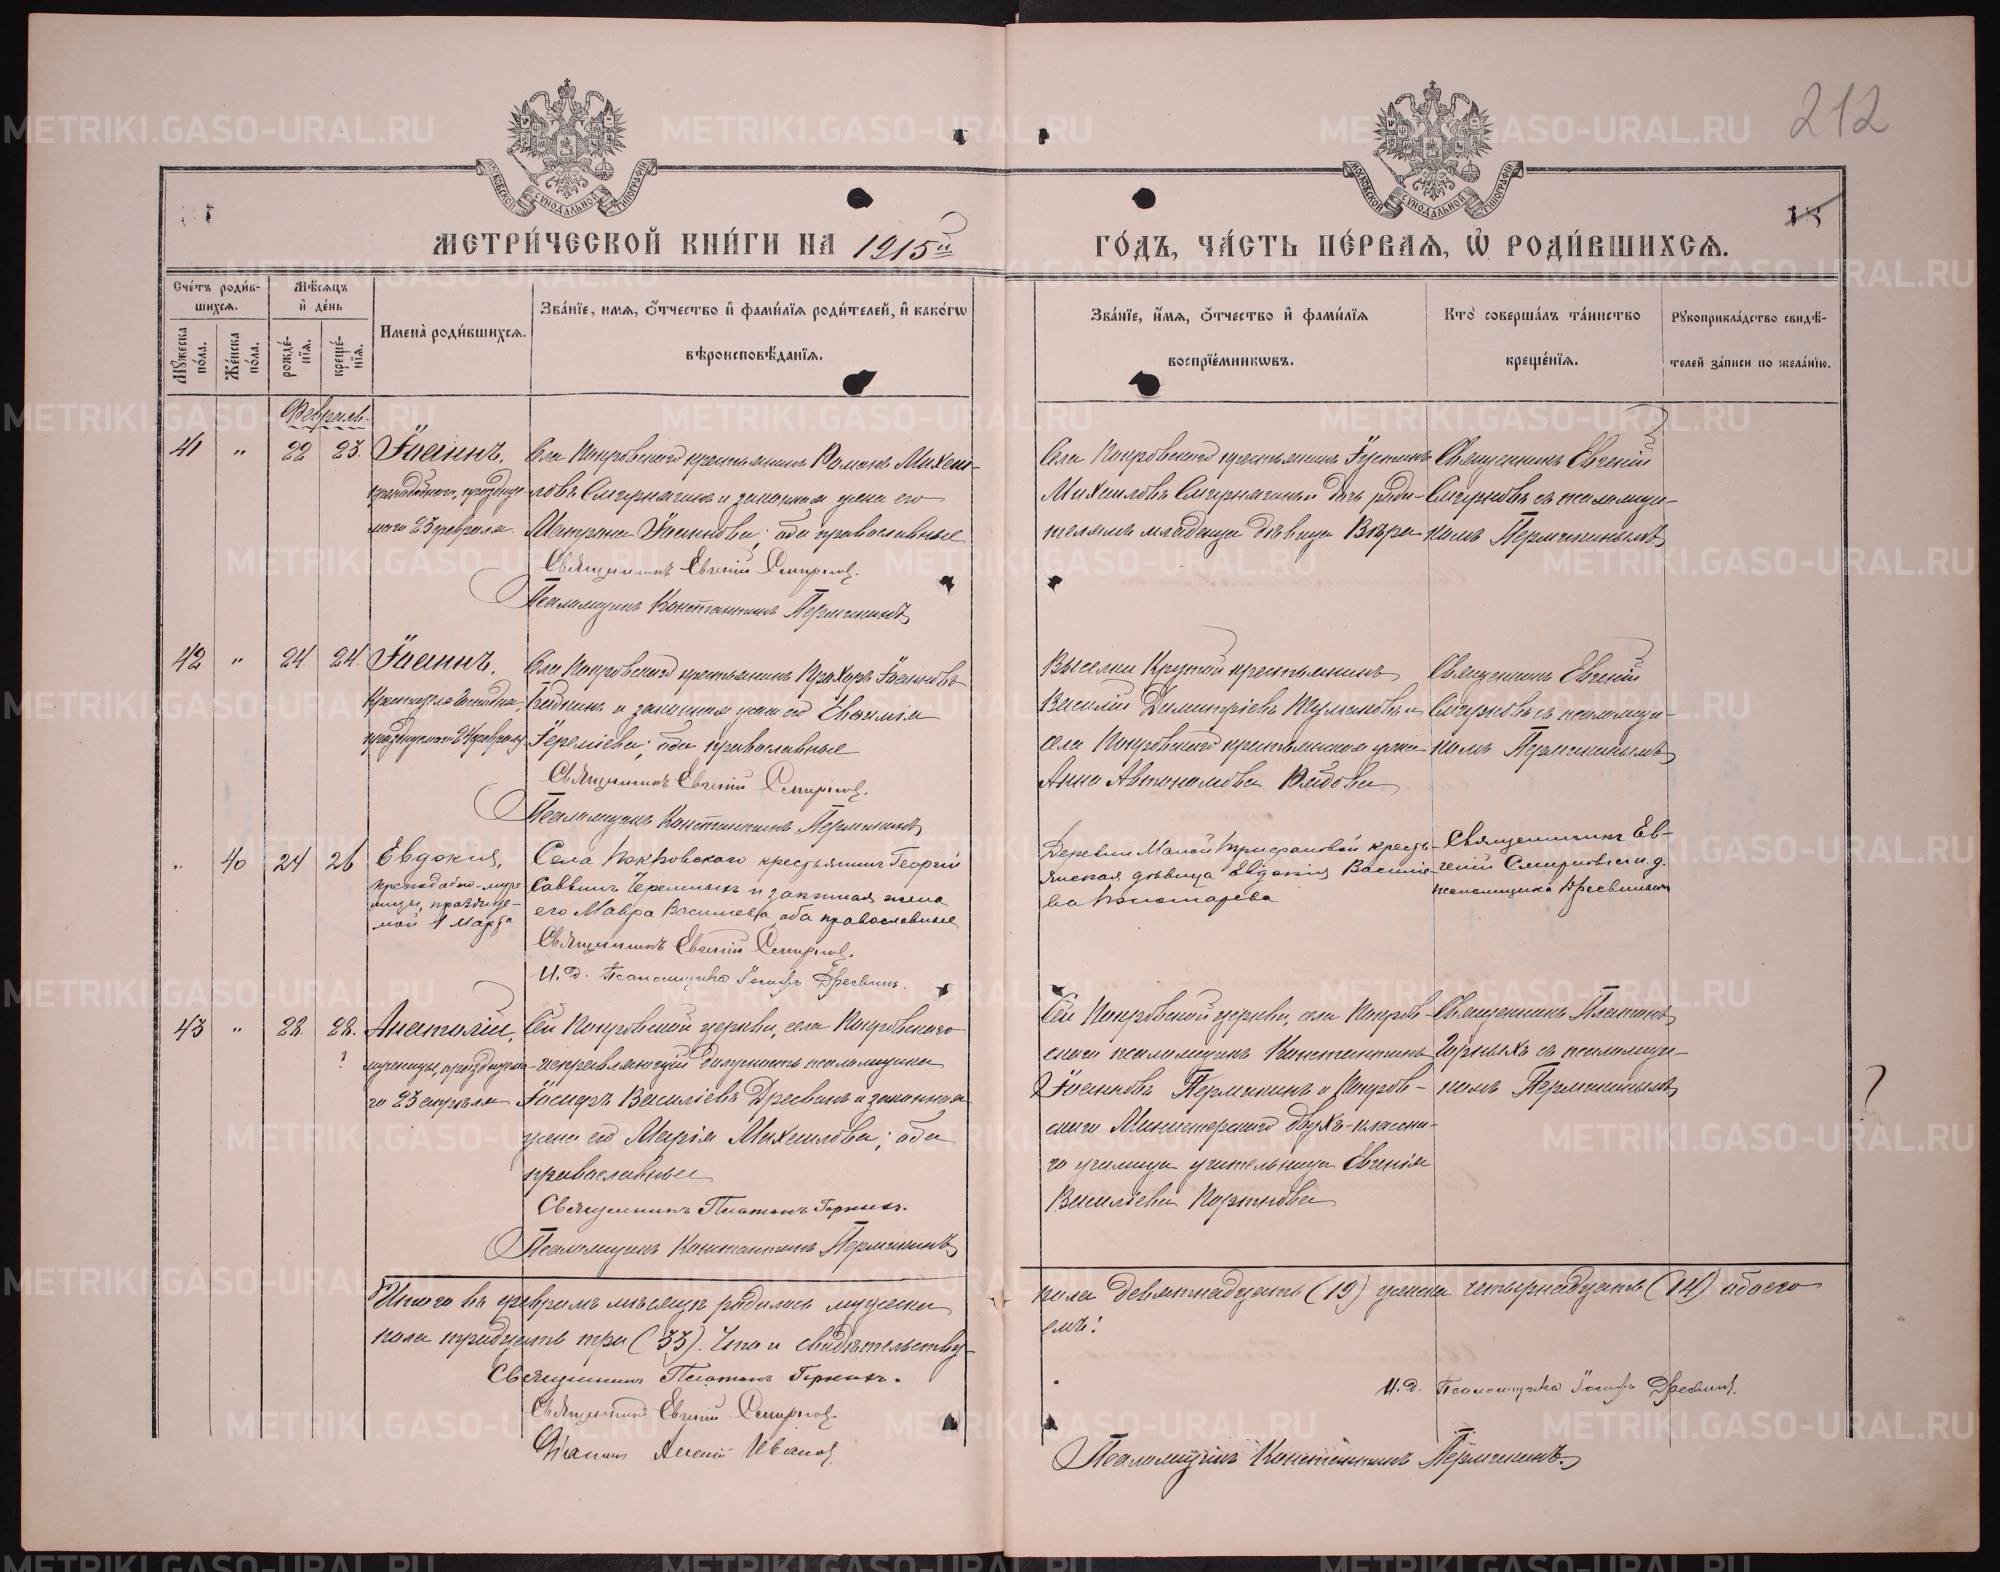 212
МОСКОВСКОЙ СѴНОДАЛЬНОЙ ТИПОГРАФІИ
МОСКОВСКОЙ СѴНОДАЛЬНОЙ ТИПОГРАФІИ
МЕТРИ́ЧЕСКОЙ КНИ́ГИ НА 1915й
ГО́ДЪ, ЧА́СТЬ ПЕ́РВАЯ, Ѡ҆ РОДИ́ВШИХСЯ.
Сче́тъ роди́в-
шихся.
Мѣ́сяцъ
и҆ де́нь
Мꙋ́жеска по́ла.
Же́нска по́ла.
рожде́-
нїя.
креще́-
нїя.
Имена̀ роди́вшихся.
Зва́нїе, имя, ѻ҆́тчество и҆ фами́лїя роди́телей, и҆ како́гѡ
вѣроисповѣ́данїя.
Зва́нїе, и҆́мя, ѻ҆́тчество и҆ фами́лїя
воспрїе́мникѡвъ.
Кто̀ соверша́лъ та́инство
креще́нїя.
Рꙋкоприкла́дство свидѣ́-
телей за́писи по жела́нїю.
Февраль.
41 " 22 23. Іоаннъ,
празднуе-
маго 23 февраля.
Села Покровскаго крестьянинъ Романъ Михаи-
ловъ Смирнягинъ и законная жена его
Матрона Іоаннова; оба православные
Священникъ Евгеній Смирновъ.
Псаломщикъ Константинъ Пермикинъ
Села Покровскаго крестьянинъ Іустинъ
Михаиловъ Смирнягинъ и дочь роди-
телямъ младенца дѣвица Вѣра
Священникъ Евгеній
Смирновъ съ псаломщи-
комъ Пермикинымъ
42 " 24 24. Іоаннъ,
Крестителя Господня,
празднуемаго 24 февраля
Села Покровскаго крестьянинъ Прохоръ Іоанновъ
и законная жена его Евфимія
Іереміева; оба православные
Священникъ Евгеній Смирновъ.
Псаломщикъ Константинъ Пермикинъ
Выселка Крутой крестьянинъ
Василій Димитріевъ и
села Покровскаго крестьянская жена
Анна Автономова
Священникъ Евгеній
Смирновъ съ псаломщи-
комъ Пермикинымъ
" 40 24 26 Евдокія,
преподобно-муче-
ницы, праздnуе-
мой 1 Марта
Села Покровскаго крестьянинъ Георгій
Саввинъ Черемныхъ и законная жена
его Мавра Васильева, оба православные
Священникъ Евгеній Смирновъ.
И. д. Псаломщика Іосифъ Дресвинъ.
Деревни Малой Трифановой кресть-
янская дѣвица Евдокія Василье-
ва Пономарева
Священникъ Ев-
геній Смирновъ съ и. д.
псаломщика Дресвинымъ
43 " 22 28. Анатолій,
?
мученика, празднуема-
го 23 апрѣля
Сей Покровской церкви, села Покровскаго
исправляющій должность псаломщика
Іосифъ Василіевъ Дресвинъ и законная
жена его Марія Михаилова; оба
православные
Священникъ Платонъ Горныхъ.
Псаломщикъ Константинъ Пермикинъ
Сей Покровской церкви, села Покров-
скаго псаломщикъ Константинъ
Іоанновъ Пермикинъ и Покров-
скаго Министерскаго двухъ-классна-
го училища учительница Евгенія
Василіева Портнова
Священникъ Платонъ
Горныхъ съ псаломщи-
комъ Пермикинымъ
?
Итого въ февралѣ мѣсяцѣ родилось мужеска
пола девятнадцать (19) женска четырнадцать (14) обоего
пола тридцать три (33). Что и свидѣтельству-
емъ:
Священникъ Платонъ Горныхъ.
Священникъ Евгеній Смирновъ.
Діаконъ Иванов.
И. д. Псаломщика Іосифъ Дресвинъ.
Псаломщикъ Константинъ Пермикинъ.
METRIKI.GASO-URAL.RU